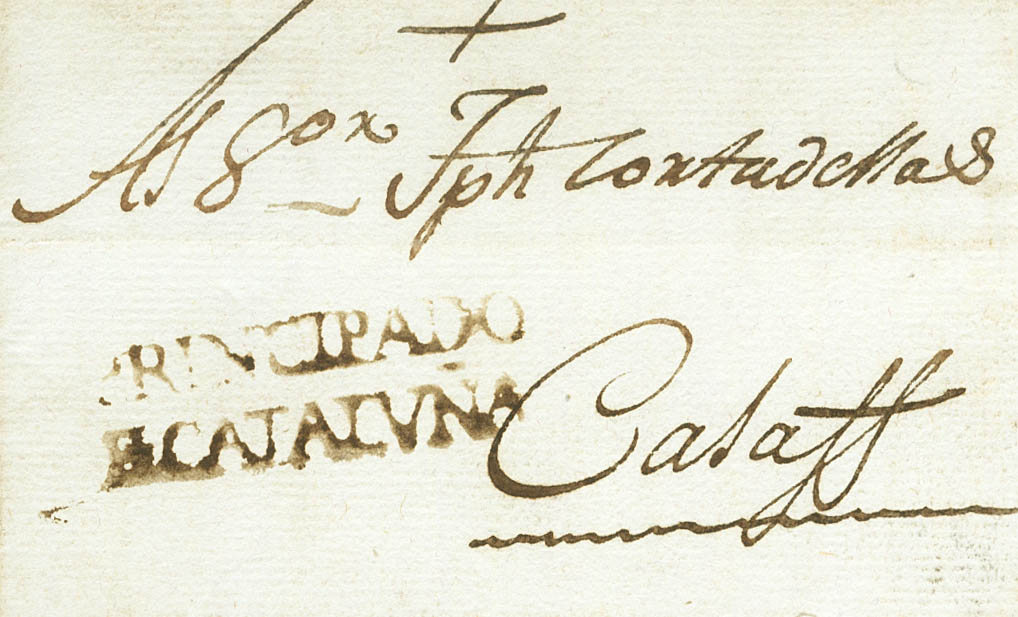 Al Sor Jph Cortadellas
PRINCIPADO
DE CATALUÑA
Calaff